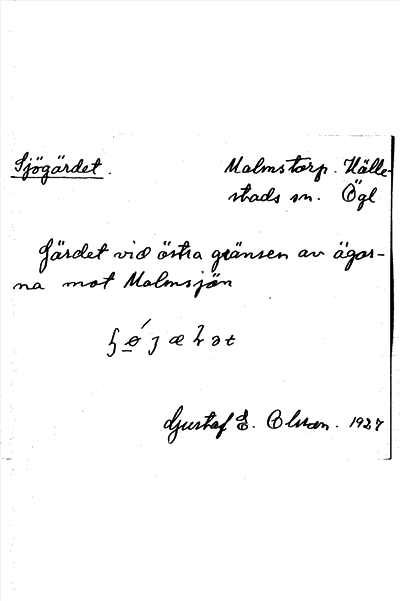 Sjögärdet. Malmstorp. Hälle-
stads sn. Ögl
Gärdet vid östra gränsen av ägor-
na mot Malmsjön
Gustaf E. Olsson. 1927